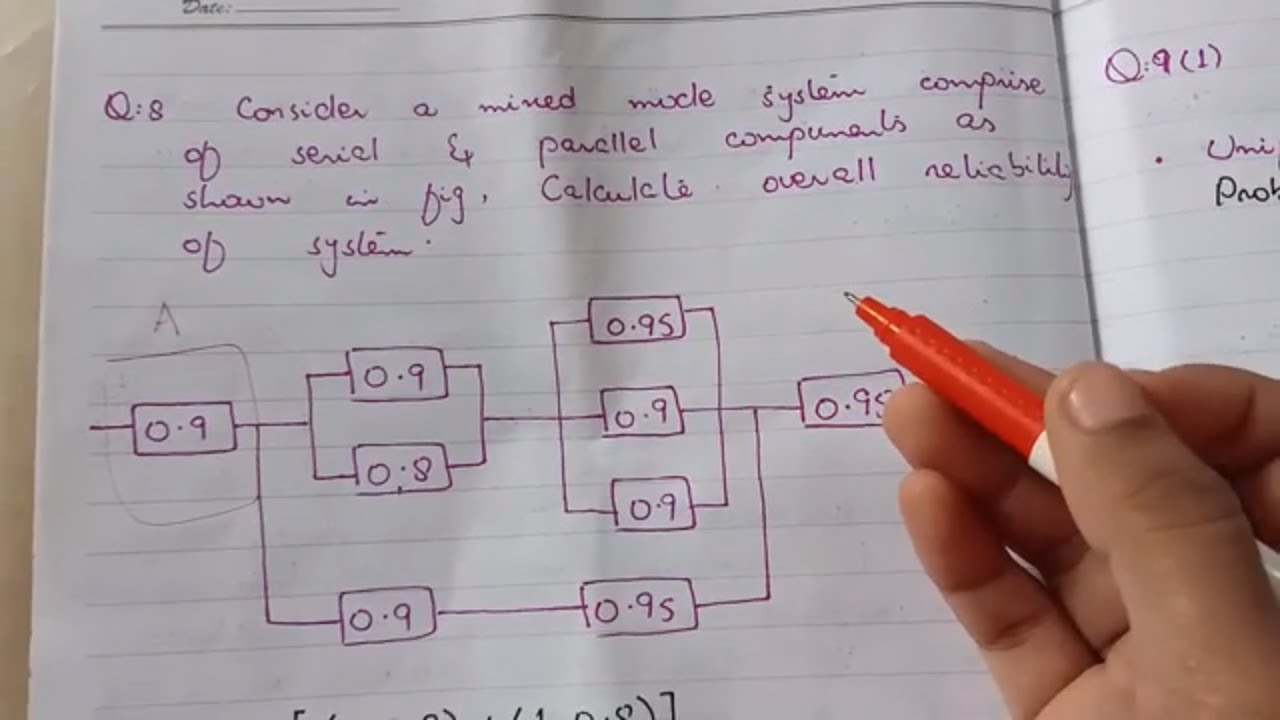 Date:
Q:8 Consider a mixed mode system comprise
of serial & parallel components as
shown in fig, Calculate overall reliability
of system.
A
0.9
0.9
0.8
0.95
0.9
0.9
0.95
0.9
0.95
Q:9(1)